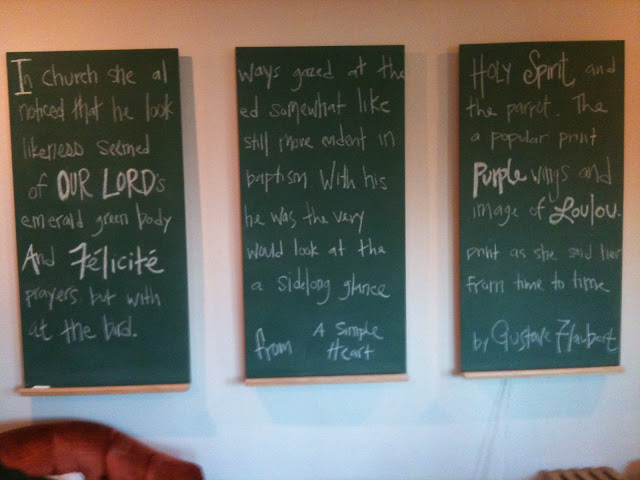 In church she always gazed at the Holy Spirit, and
noticed that he looked somewhat like the parrot. The
likeness seemed still more evident in a popular print
of OUR LORD's baptism. With his Purple wings and
emerald green body he was the very image of Loulou.
And Félicité would look at the print as she said her
prayers but with a sidelong glance from time to time
at the bird. from A Simple Heart by Gustave Flaubert